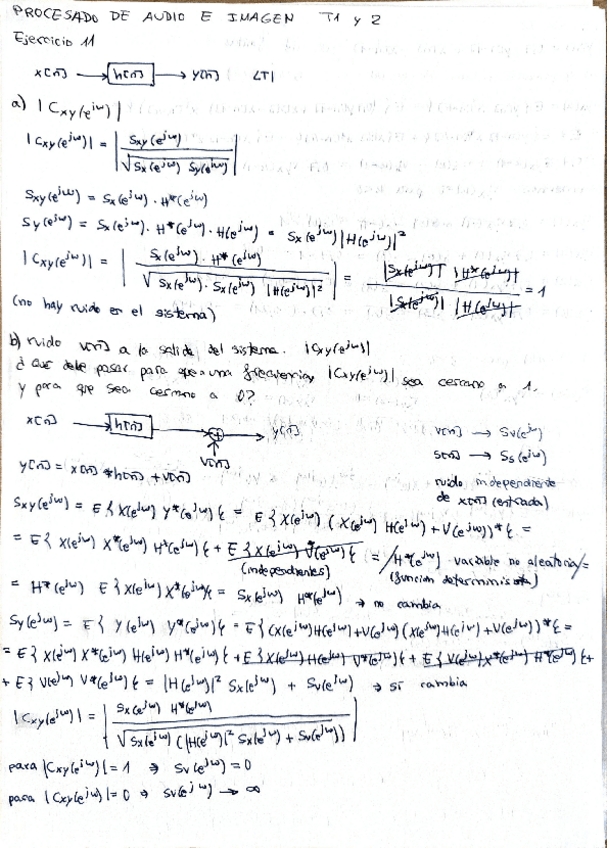 PROCESADO DE AUDIO E IMAGEN T1 y 2
Ejercicio 11
x[n] → h[n] → y[n] LTI
a) |Cxy(e^jω)|
|Cxy(e^jω)| = | Sxy(e^jω) / √(Sx(e^jω) Sy(e^jω)) |
Sxy(e^jω) = Sx(e^jω) · H*(e^jω)
Sy(e^jω) = Sx(e^jω) · H*(e^jω) · H(e^jω) = Sx(e^jω) |H(e^jω)|²
|Cxy(e^jω)| = | Sx(e^jω) · H*(e^jω) / √(Sx(e^jω) · Sx(e^jω) |H(e^jω)|²) | = |Sx(e^jω)| |H*(e^jω)| / |Sx(e^jω)| |H(e^jω)| = 1
(no hay ruido en el sistema)
b) ruido v[n] a la salida del sistema. |Cxy(e^jω)|
¿ que debe pasar para que a una frecuencia, |Cxy(e^jω)| sea cercano a 1.
y para que sea cercano a 0?
x[n] → h[n] → + → y[n] v[n] → Sv(e^jω)
v[n] s[n] → Ss(e^jω)
y[n] = x[n] * h[n] + v[n] ruido independiente
de x[n] (entrada)
Sxy(e^jω) = E{ X(e^jω) Y*(e^jω) } = E{ X(e^jω) (X(e^jω) H(e^jω) + V(e^jω))* } =
= E{ X(e^jω) X*(e^jω) H*(e^jω) } + E{ X(e^jω) V*(e^jω) } = /H*(e^jω) variable no aleatoria/ =
(independientes) (función determinista)
= H*(e^jω) E{ X(e^jω) X*(e^jω) } = Sx(e^jω) H*(e^jω) → no cambia
Sy(e^jω) = E{ Y(e^jω) Y*(e^jω) } = E{ (X(e^jω) H(e^jω) + V(e^jω) (X(e^jω) H(e^jω) + V(e^jω))* } =
= E{ X(e^jω) X*(e^jω) H(e^jω) H*(e^jω) } + E{ X(e^jω) H(e^jω) V*(e^jω) } + E{ V(e^jω) X*(e^jω) H*(e^jω) } +
+ E{ V(e^jω) V*(e^jω) } = |H(e^jω)|² Sx(e^jω) + Sv(e^jω) → sí cambia
|Cxy(e^jω)| = | Sx(e^jω) H*(e^jω) / √(Sx(e^jω) (|H(e^jω)|² Sx(e^jω) + Sv(e^jω))) |
para |Cxy(e^jω)| = 1 ⇒ Sv(e^jω) = 0
para |Cxy(e^jω)| = 0 ⇒ Sv(e^jω) → ∞